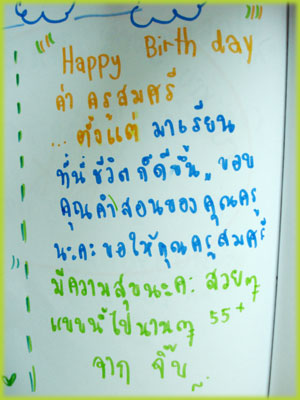 Happy Birth day
ค่า ครูสมศรี
... ตั้งแต่ มาเรียน
ที่นี่ ชีวิต ก็ดีขึ้น ขอบ
คุณคำสอนของคุณครู
นะคะ ขอให้คุณครูสมศรี
มีความสุขนะคะ สวยๆ
แบบนี้ไปนานๆ 55+
จาก จิ๊บ